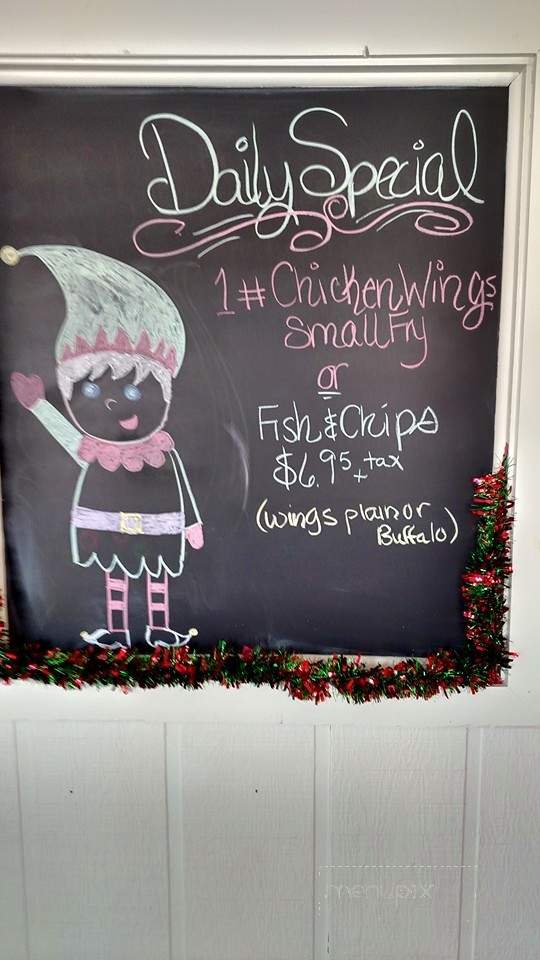 Daily Special
1# Chicken Wings
small Fry
or
Fish & Chips
$6.95 + tax
(wings plain or
Buffalo)
menupix